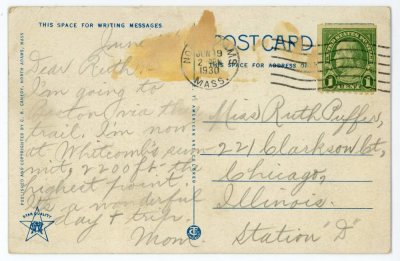 THIS SPACE FOR WRITING MESSAGES.
POSTCARD
THIS SPACE FOR ADDRESS ON
JUN 19
2
1930
MASS.
UNITED STATES POSTAGE
1 CENT 1
June
Dear Ruth:-
I'm going to
Boston via this
trail. I'm now
at Whitcomb's sum-
mit, 2200 ft. the
highest point.
It's a wonderful
day & trip.
Mom
Miss Ruth Puffer,
221 Clarkson Ct,
Chicago,
Illinois.
Station "D"
PUBLISHED AND COPYRIGHTED BY C. R. CANEDY, NORTH ADAMS, MASS.
STAR QUALITY